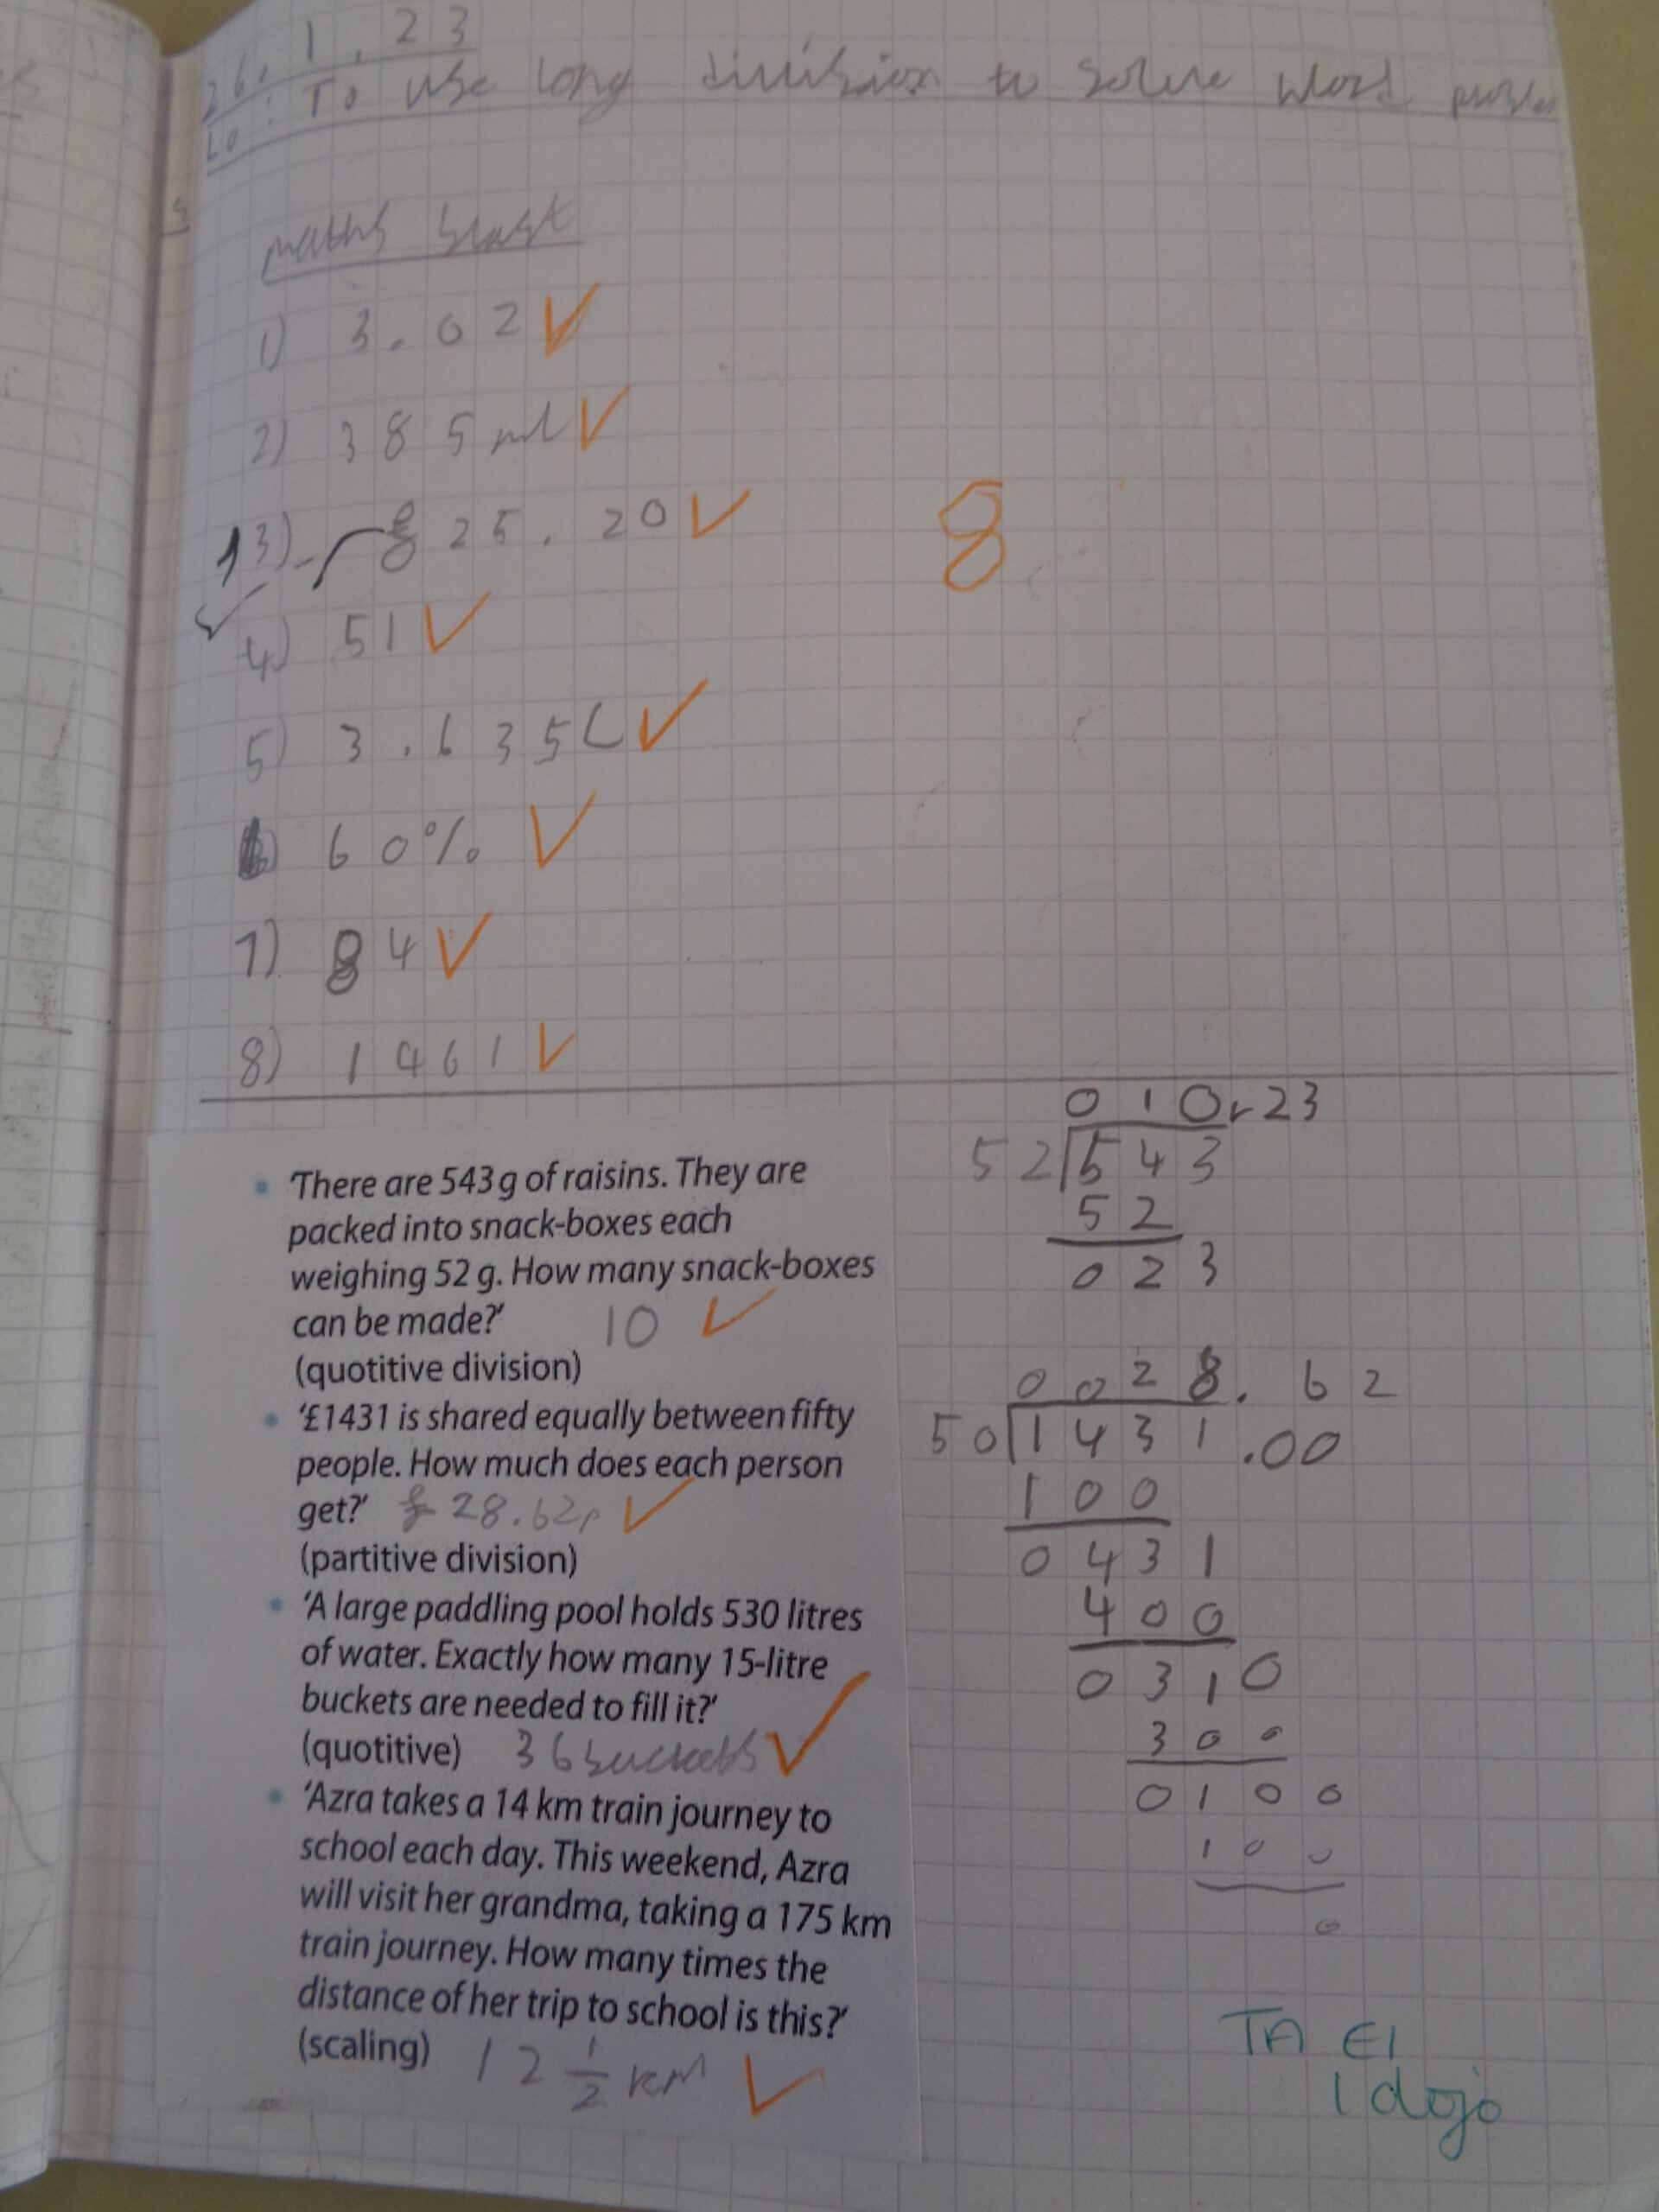 26.1.23
LO: To use long division to solve word
maths blast
1) 3.02
2) 385ml
13) £25.20
8
4) 51
5) 3.635L
6) 60%
7) 84
8) 1461
'There are 543 g of raisins. They are
packed into snack-boxes each
weighing 52 g. How many snack-boxes
can be made?' 10
(quotitive division)
'£1431 is shared equally between fifty
people. How much does each person
get?' £28.62p
(partitive division)
'A large paddling pool holds 530 litres
of water. Exactly how many 15-litre
buckets are needed to fill it?'
(quotitive) 36 buckets
'Azra takes a 14 km train journey to
school each day. This weekend, Azra
will visit her grandma, taking a 175 km
train journey. How many times the
distance of her trip to school is this?'
(scaling) 12 1/2 km
010r23
52 543
52
023
0028.62
50 1431.00
100
0431
400
0310
300
0100
100
0
TA EI
1 dojo